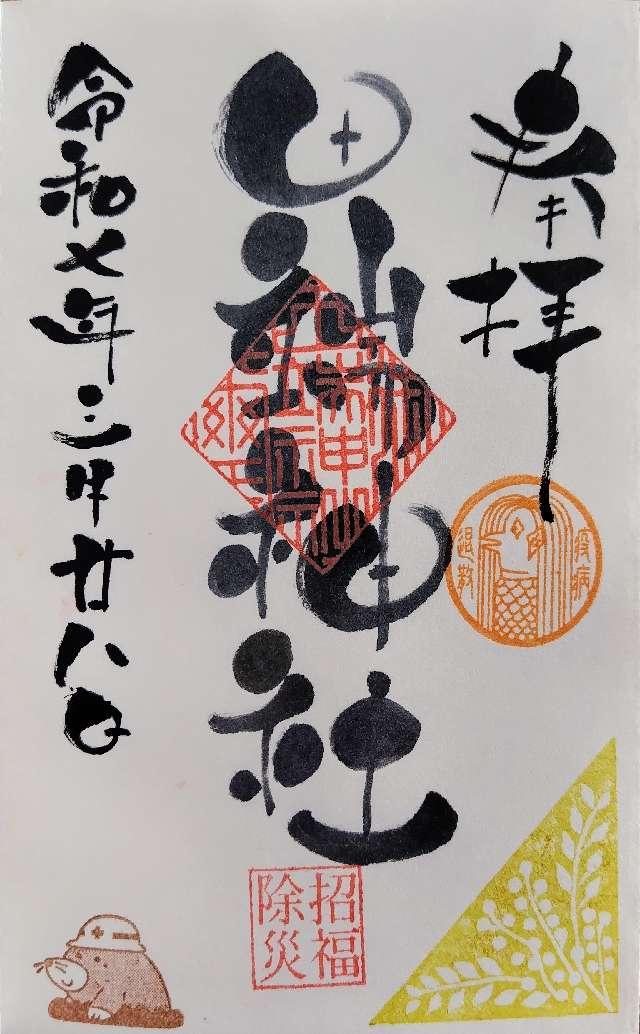 奉拝
疫病
退散
田端神社
招福
除災
令和七年三月廿八日